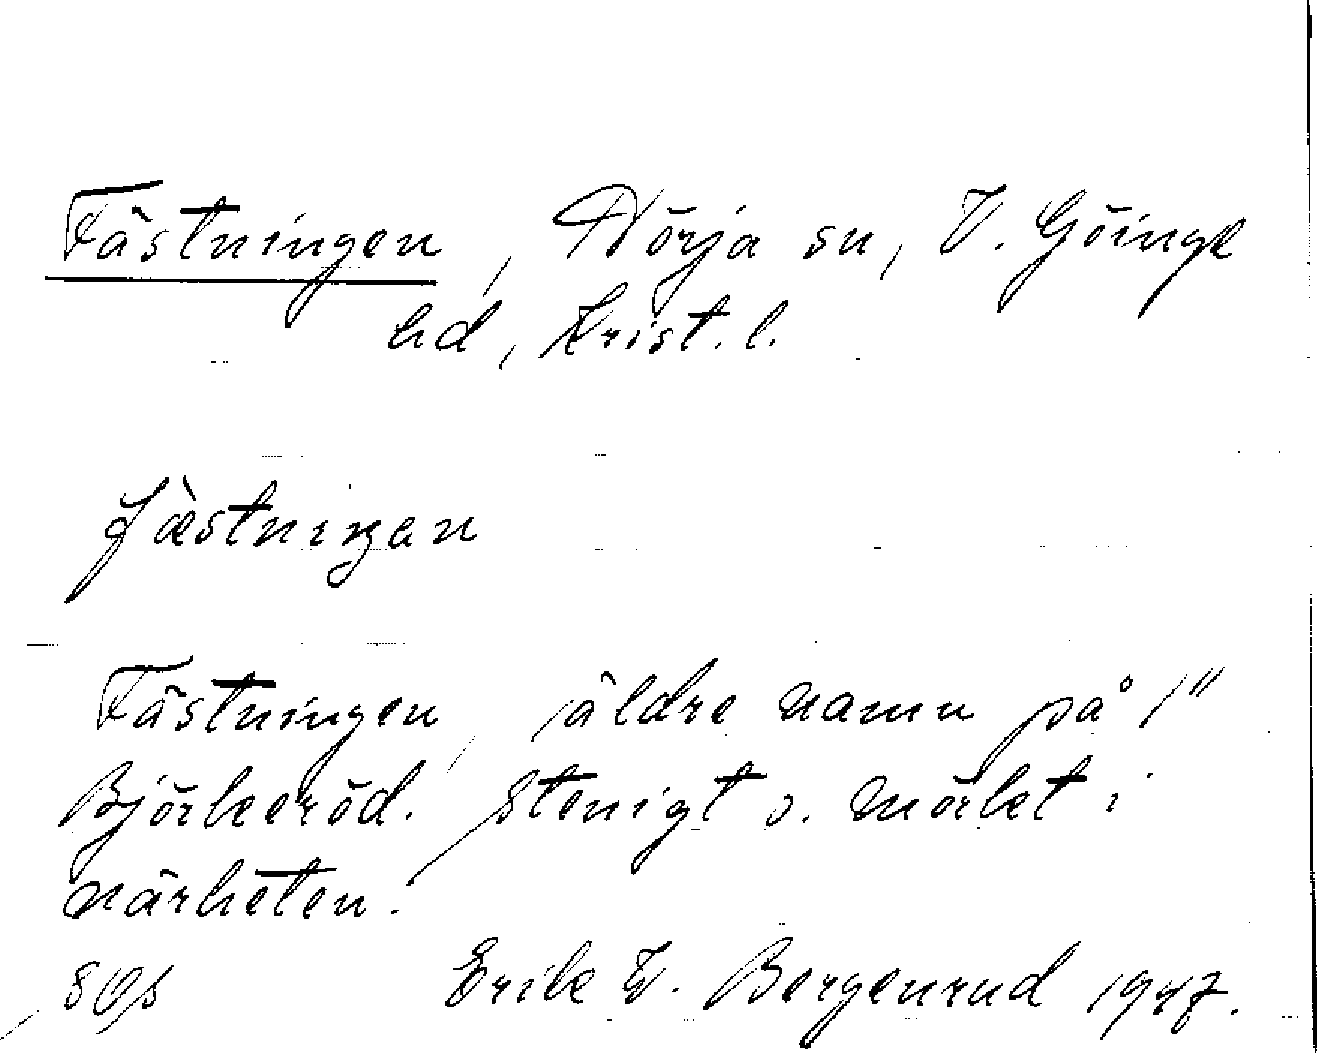 Fästningen, Nörja sn, V. Göinge
hd, Krist. l.
fæstniŋen
Fästningen, äldre namn på 1"
Björkeröd. Stenigt o. mörkt i
närheten.
Erik W. Bergenrud 1947.